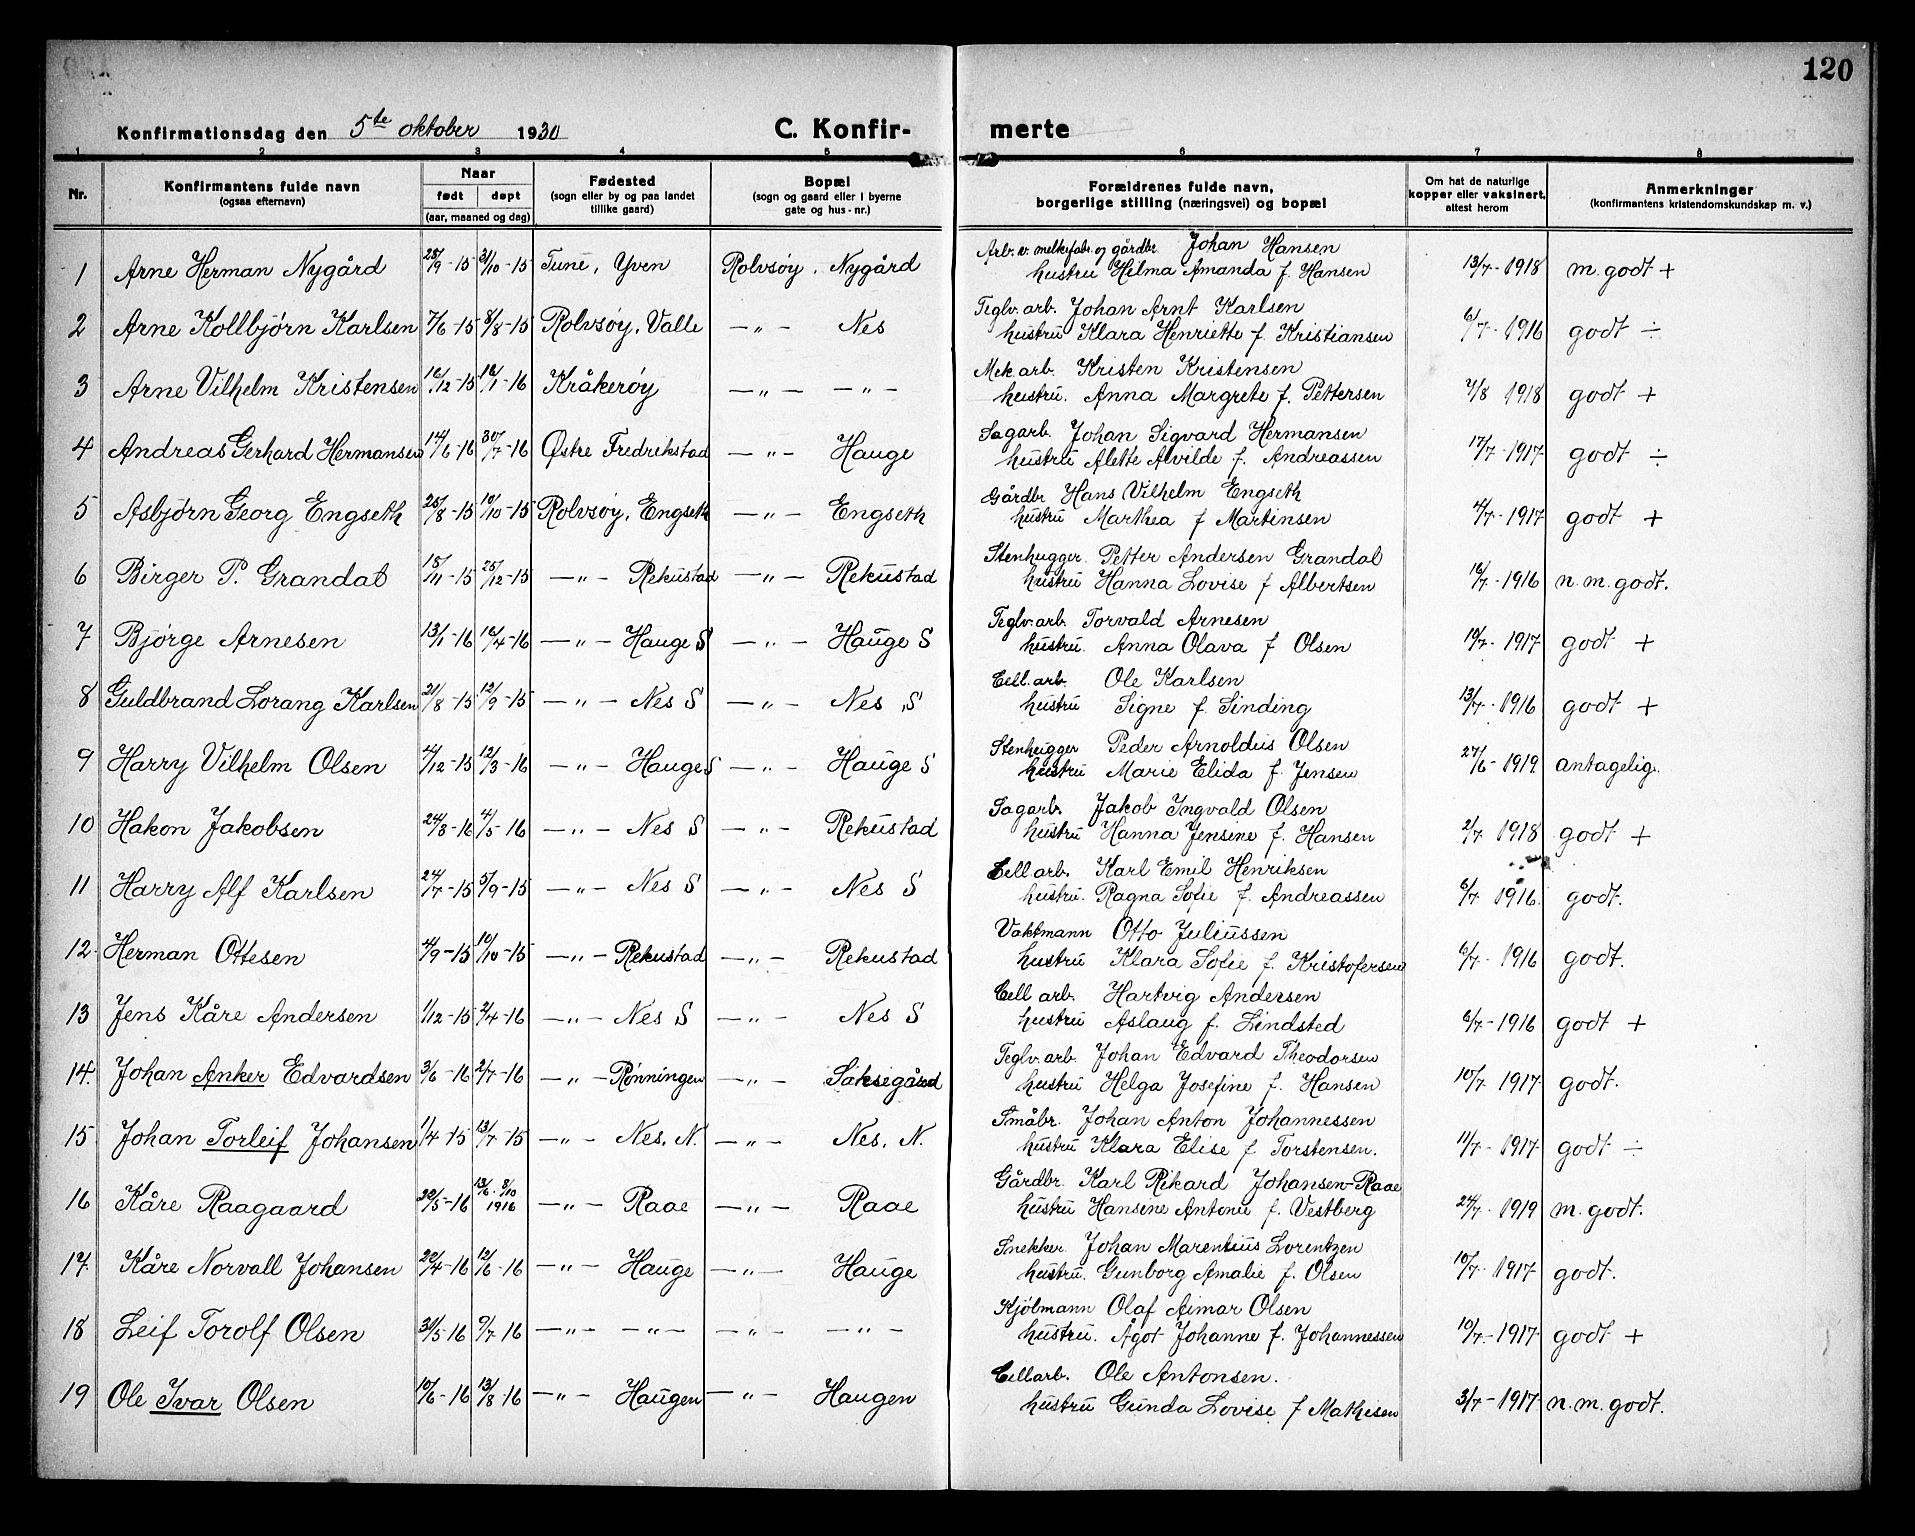 120
Konfirmationsdag den 5te oktober 1930 C. Konfir- merte
1 2 3 4 5 6 7 8
Nr. Konfirmantens fulde navn (ogsaa efternavn) Naar født døpt (aar, maaned og dag) Fødested (sogn eller by og paa landet tillike gaard) Bopæl (sogn og gaard eller i byerne gate og hus-nr.) Forældrenes fulde navn, borgerlige stilling (næringsvei) og bopæl Om hat de naturlige kopper eller vaksinert, attest herom Anmerkninger (konfirmantens kristendomskundskap m. v.)
1 Arne Herman Nygård 28/9-15 31/10-15 Tune, Yven Rolvsøy, Nygård Arb. v. melkefabr. og gårdbr. Johan Hansen
hustru Hilma Amanda f. Hansen 13/7-1918 m. godt +
2 Arne Kollbjørn Karlsen 7/6-15 8/8-15 Rolvsøy, Valle —"— Nes Teglv. arb. Johan Arnt Karlsen
hustru Klara Henriette f Kristiansen 6/7-1916 godt ÷
3 Arne Vilhelm Kristensen 16/12-15 16/1-16 Kråkerøy —"— —"— Mek. arb. Kristen Kristensen
hustru. Anna Margrete f. Pettersen 7/8 1918 godt +
4 Andreas Gerhard Hermansen 14/6-16 30/7-16 Østre Fredrikstad —"— Hauge Sagarb. Johan Sigvard Hermansen
hustru Alette Alvilde f. Andreassen 17/7-1917 godt ÷
5 Asbjørn Georg Engseth 25/8-15 10/10-15 Rolvsøy, Engseth —"— Engseth Gårdbr Hans Vilhelm Engseth
hustru Marthea f Martinsen 4/7-1917 godt +
6 Birger P. Grandal 15/11-15 25/12-15 —"— Rekustad —"— Rekustad Stenhugger Petter Andersen Grandal
hustru Hanna Lovise f Albertsen 16/7-1916 n. m. godt.
7 Bjørge Arnesen 13/1-16 16/4-16 —"— Hauge S —"— Hauge S Teglv. arb. Torvald Arnesen
hustru. Anna Olava f Olsen 10/7-1917 godt +
8 Guldbrand Lorang Karlsen 21/8-15 12/9-15 —"— Nes S —"— Nes S Cell. arb. Ole Karlsen
hustru Signe f. Sinding 13/7-1916 godt +
9 Harry Vilhelm Olsen 4/12-15 12/3-16 —"— Hauge S —"— Hauge S Stenhugger Peder Arnoldus Olsen
hustru Marie Elida f. Jensen 27/6-1919 antagelig.
10 Hakon Jakobsen 24/3-16 4/5-16 —"— Nes S —"— Rekustad Sagarb. Jakob Ingvald Olsen
hustru Hanna Jensine f. Hansen 2/7 1918 godt +
11 Harry Alf Karlsen 24/7-15 5/9-15 —"— Nes S —"— Nes S Cell arb. Karl Emil Henriksen
hustru. Ragna Sofie f. Andreassen 6/7 1916 godt.
12 Herman Ottesen 4/9-15 10/10-15 —"— Rekustad —"— Rekustad Vaktmann Otto Juliussen
hustru Klara Sofie f. Kristofersen 6/7-1916 godt.
13 Jens Kåre Andersen 1/12-15 2/4-16 —"— Nes S —"— Nes S Cell arb. Hartvig Andersen
hustru Aslaug f. Lindsted 6/7-1916 godt +
14. Johan Anker Edvardsen 3/6-16 2/7-16 —"— Rønningen —"— Saksegård Teglv. arb. Johan Edvard Theodorsen
hustru Helga Josefine f. Hansen 10/7 1917 godt.
15 Johan Torleif Johansen 1/4-15 13/7-15 —"— Nes. N. —"— Nes. N. Småbr. Johan Anton Johannessen
hustru Klara Elise f Torstensen. 11/7-1917 godt ÷
16 Kåre Raagaard 22/5-16 13/6. 8/10 1916 —"— Raae —"— Raae Gårdbr. Karl Rikard Johansen-Raae
hustru Hansine Antonie f. Vestberg 24/7-1919 m. godt.
17. Kåre Norvall Johansen 22/4-16 12/6-16 —"— Hauge —"— Hauge Snekker. Johan Marentius Lorentzen
hustru. Gunborg Amalie f. Olsen 10/7-1917 godt.
18 Leif Torolf Olsen 31/5-16 9/7-16 —"— —"— —"— —"— Kjølmann Olaf Aimar Olsen
hustru. Ågot Johanne f. Johannessen 10/7-1917 godt +
19 Ole Ivar Olsen 10/6-16 13/8-16 —"— Haugen —"— Haugen Cellarb. Ole Antonsen.
hustru Gunda Lovise f Mathisen 3/7-1917 n. m. godt.